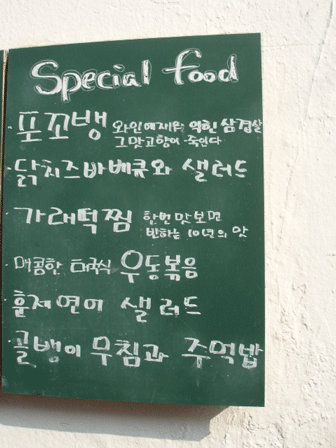 Special food
· 포꼬뱅 와인에재운 억힌 삼겹살
그맛고향이 죽인다
· 닭치즈바베큐와 샐러드
· 가래떡찜 한번맛보면
반하는 10년의 맛
· 매콤한 태국식 우동볶음
· 훈제연어 샐러드
· 골뱅이 무침과 주먹밥